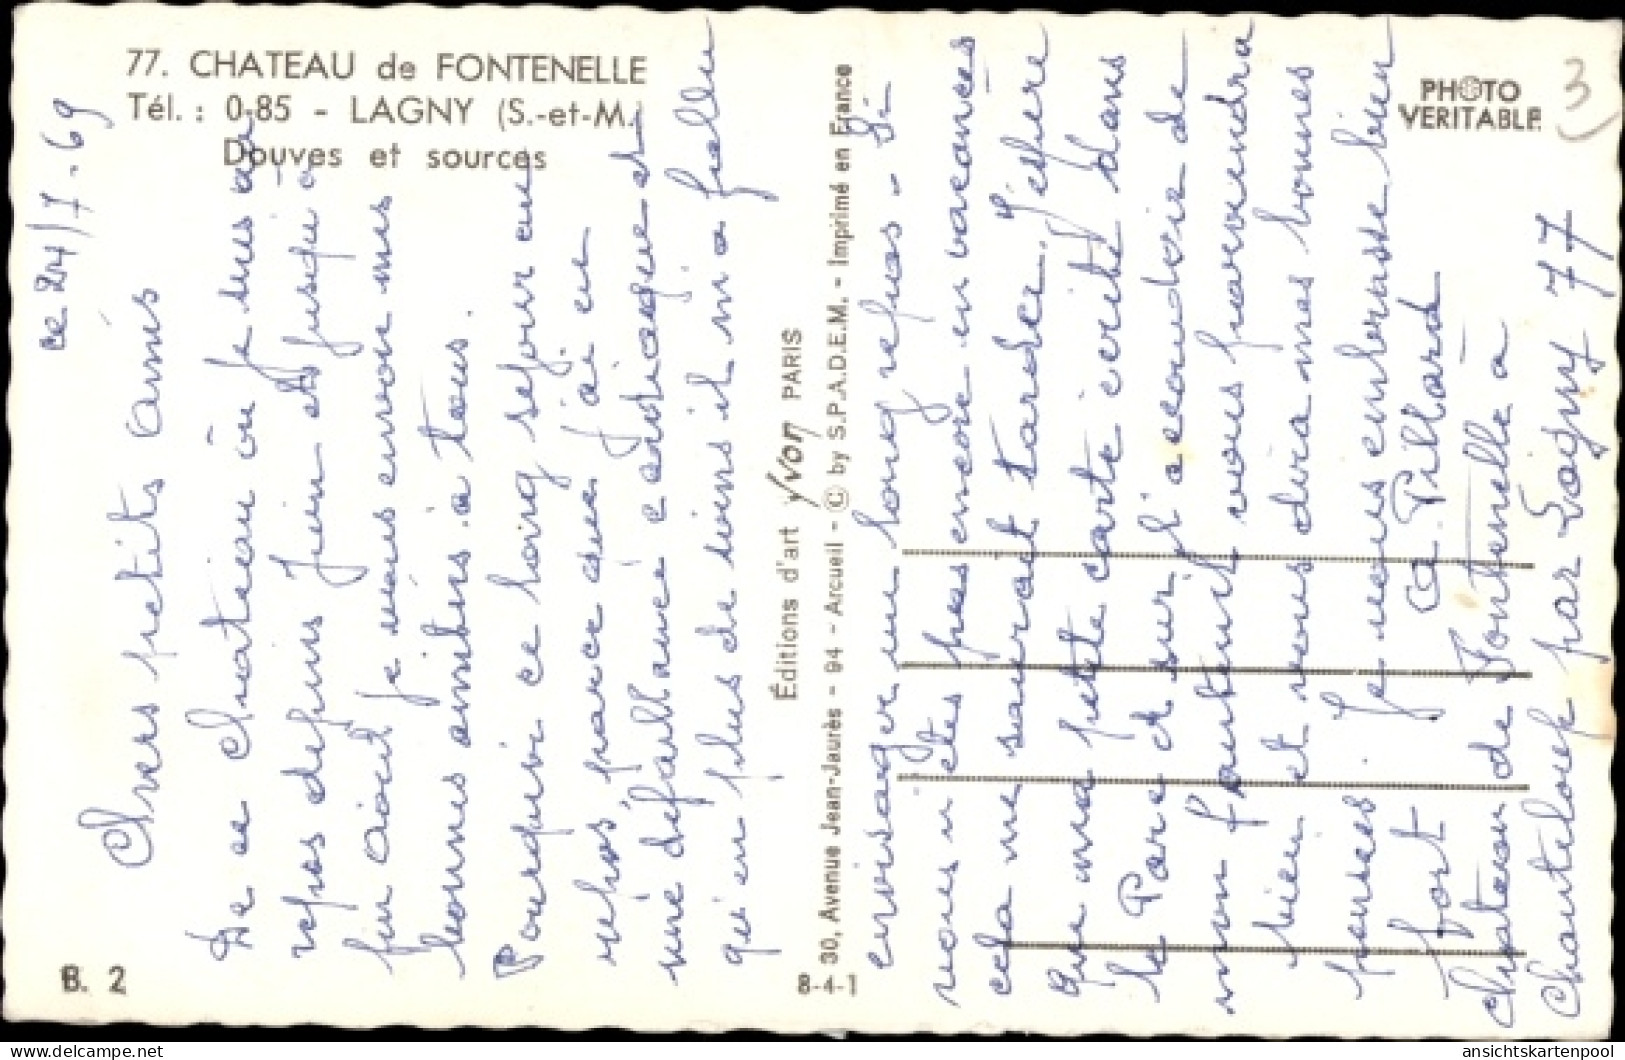 77. CHATEAU de FONTENELLE
Tél. : 0-85 - LAGNY (S.-et-M.)
Douves et sources
PHOTO
VERITABLE
3
ce 24/7-69
Chers petits amis
De ce chateau où je suis au
repos depuis Juin et jusqu'à
fin Août je vous envoie mes
bonnes amitiés à tous.
Pourquoi ce long séjour au
repos, parce que j'ai eu
une défaillance cardiaque et
qu'en plus de vins il m'a fallu
envisager un long repos - Si
vous n'êtes pas encore en vacances
cela ne saurait tarder. J'espère
que ma petite carte écrite dans
le Parc et sur l'accoudoir de
mon fauteuil vous parviendra
bien et vous dira mes bonnes
pensées Je vous embrasse bien
fort G. Pillard
Chateau de Fontenelle à
Chanteloup par Lagny 77
Éditions d'art Yvon PARIS
30, Avenue Jean-Jaurès - 94 - Arcueil - © by S.P.A.D.E.M. - Imprimé en France
B. 2
8-4-1
ansichtskartenpool